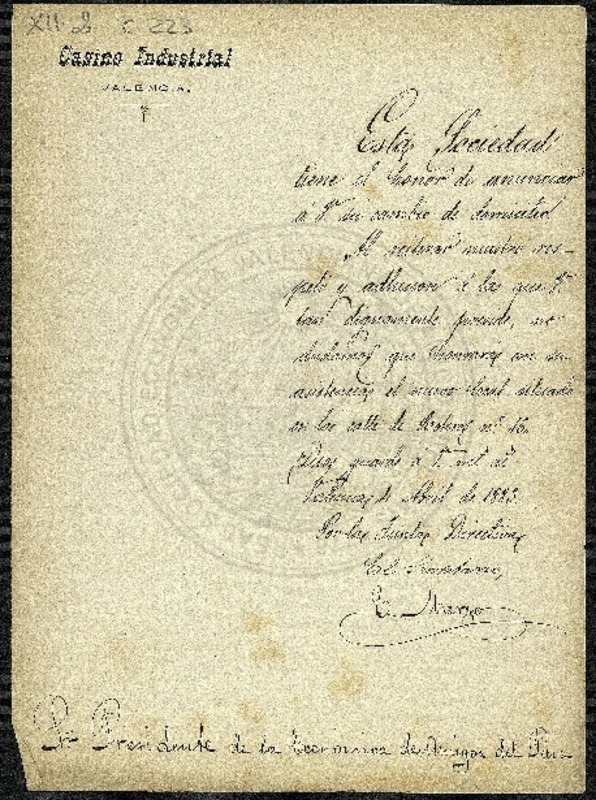 XII 2 C 223
Casino Industrial
VALENCIA.
Esta Sociedad
tiene el honor de anunciar
á V. su cambio de domicilio.
Al reiterar nuestro res-
peto y adhesion á la que V.
tan dignamente preside, no
dudamos que honrará con su
asistencia el nuevo local situado
en la calle de nº 15.
Dios guarde á V. mˢ aˢ
Valencia de Abril de 1883.
Por la Junta Directiva
El Secretario,
E. Marzo
Sr Presidente de la Económica de Amigos del Pais